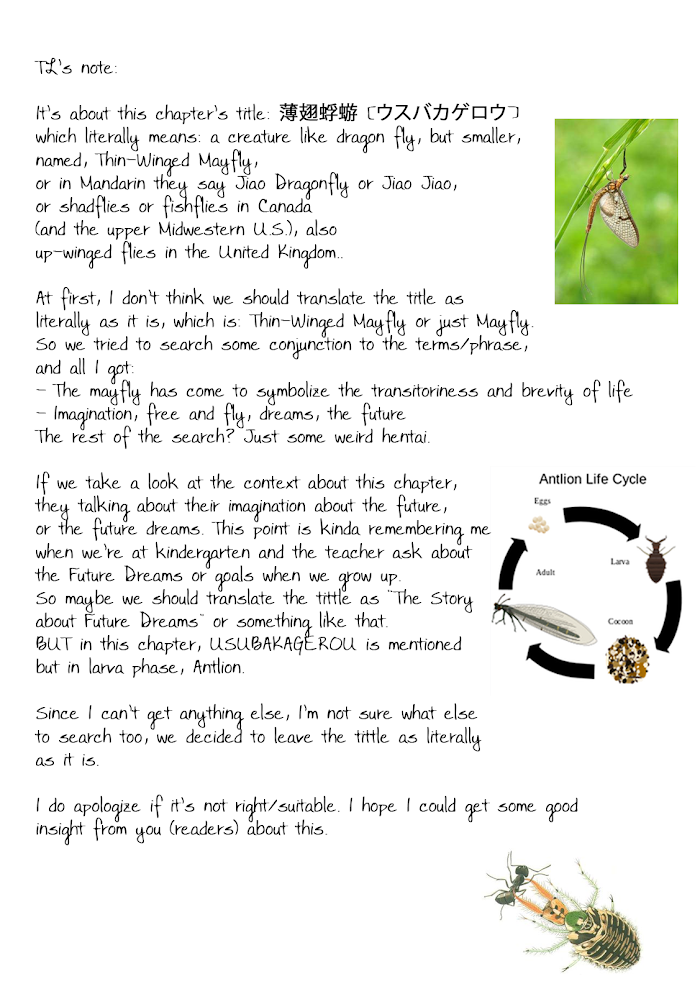 TL's note:
It's about this chapter's title: 薄翅蜉蝣 [ウスバカゲロウ]
which literally means: a creature like dragon fly, but smaller,
named, Thin-Winged Mayfly,
or in Mandarin they say Jiao Dragonfly or Jiao Jiao,
or shadflies or fishflies in Canada
(and the upper Midwestern U.S.), also
up-winged flies in the United Kingdom..
At first, I don't think we should translate the title as
literally as it is, which is: Thin-Winged Mayfly or just Mayfly.
So we tried to search some conjunction to the terms/phrase,
and all I got:
- The mayfly has come to symbolize the transitoriness and brevity of life
- Imagination, free and fly, dreams, the future
The rest of the search? Just some weird hentai.
If we take a look at the context about this chapter,
they talking about their imagination about the future,
or the future dreams. This point is kinda remembering me
when we're at kindergarten and the teacher ask about
the Future Dreams or goals when we grow up.
So maybe we should translate the tittle as "The Story
about Future Dreams" or something like that.
BUT in this chapter, USUBAKAGEROU is mentioned
but in larva phase, Antlion.
Since I can't get anything else, I'm not sure what else
to search too, we decided to leave the tittle as literally
as it is.
I do apologize if it's not right/suitable. I hope I could get some good
insight from you (readers) about this.
Antlion Life Cycle
Eggs
Larva
Adult
Cocoon